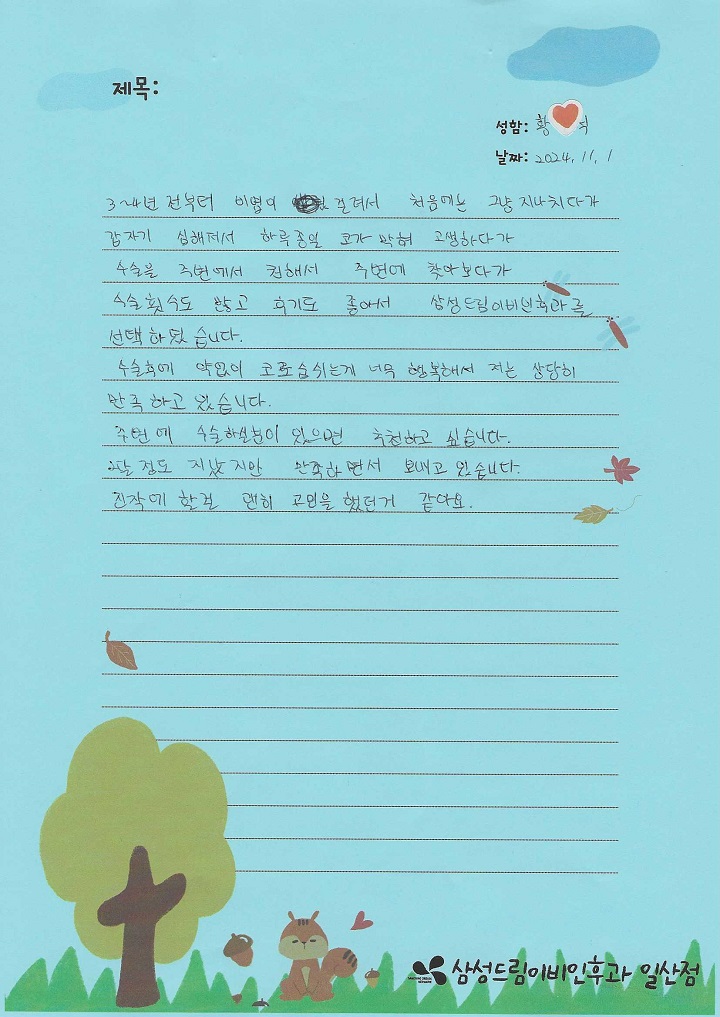 제목:
성함: 황 석
날짜: 2024. 11. 1
3~4년 전부터 비염이 걸려서 처음에는 그냥 지나치다가
갑자기 심해져서 하루종일 코가 막혀 고생하다가
수술을 주변에서 권해서 주변에 찾아보다가
수술 횟수도 많고 후기도 좋아서 삼성드림이비인후과를
선택하였습니다.
수술후에 약없이 코로 숨쉬는게 너무 행복해서 저는 상당히
만족하고 있습니다.
주변에 수술하실분이 있으면 추천하고 싶습니다.
2달 정도 지났지만 만족하면서 보내고 있습니다.
진작에 할걸 괜히 고민을 했던거 같아요.
삼성드림이비인후과 일산점